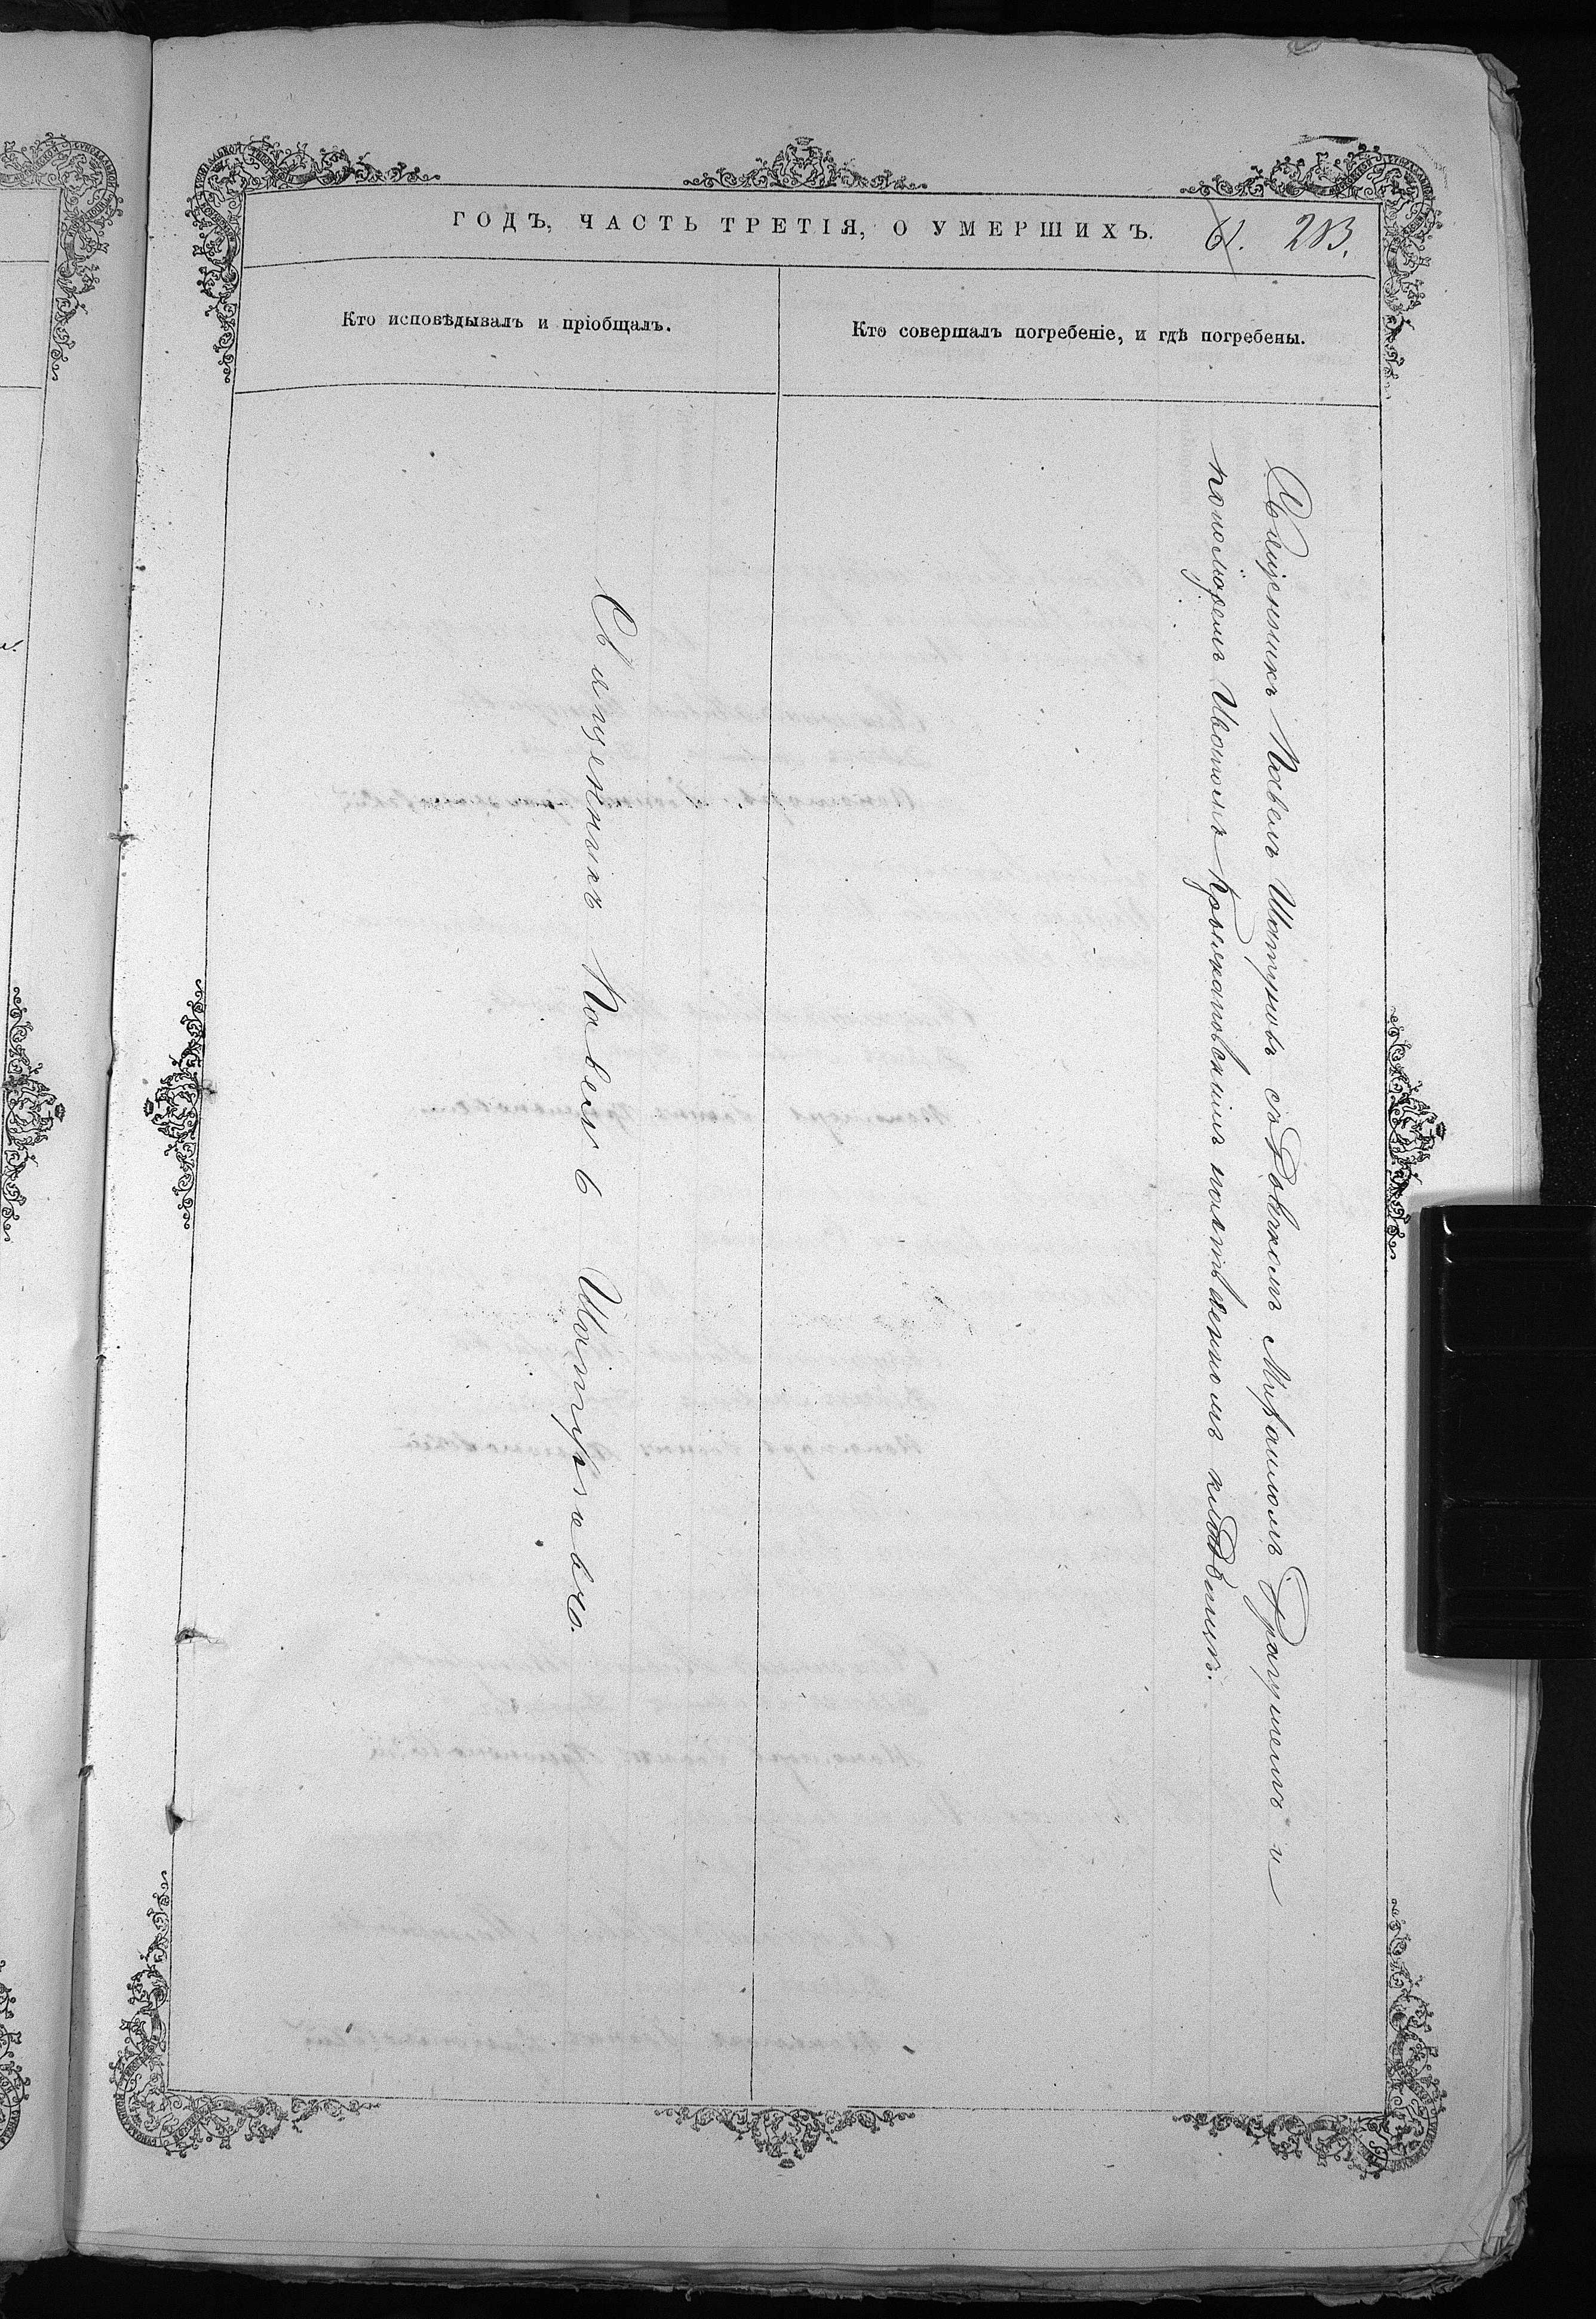 ГОДЪ, ЧАСТЬ ТРЕТІЯ, О УМЕРШИХЪ.
61. 203.
Кто исповѣдывалъ и пріобщалъ.
Кто совершалъ погребеніе, и гдѣ погребены.
Священникъ Павелъ Шатуновъ.
Священникъ Павелъ Шатуновъ съ Дьячкомъ Михаиломъ и
пономаремъ на кладбищѣ.